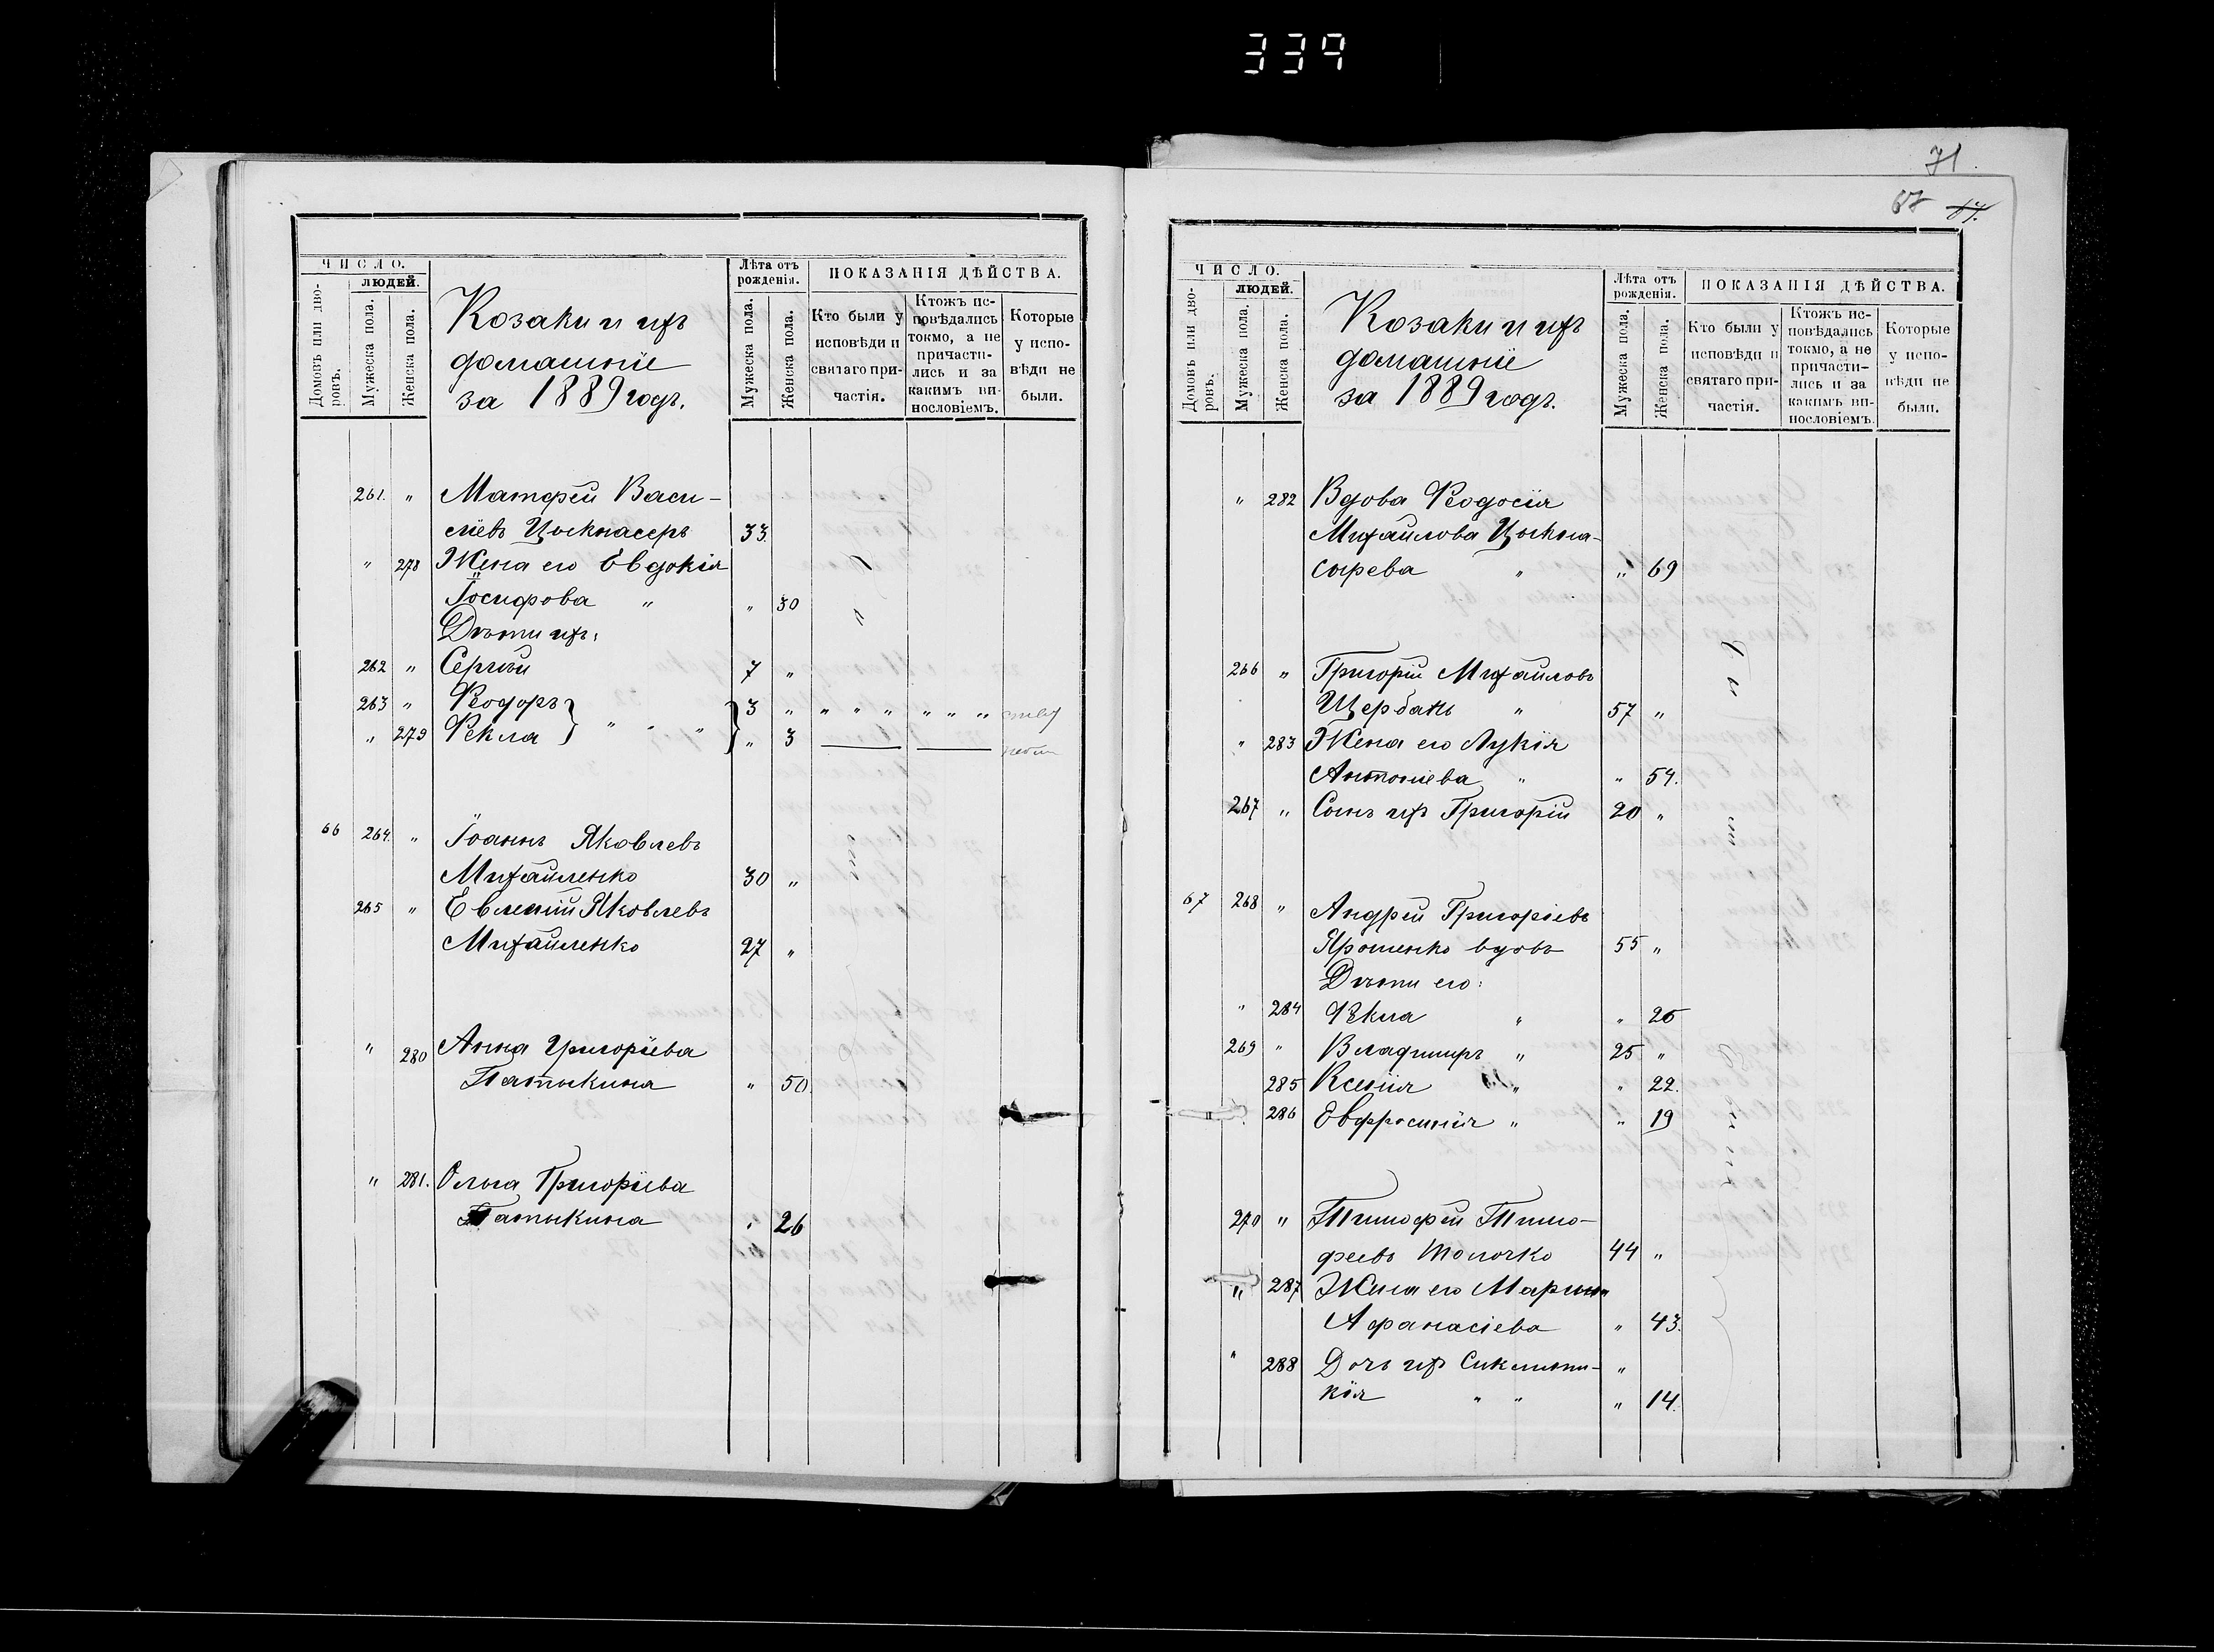 339
ЧИСЛО.
ЛЮДЕЙ.
Домовъ или дворовъ.
Мужеска пола.
Женска пола.
Козаки и ихъ
домашніе
за 1889 годъ.
Лѣта отъ рожденія.
Мужеска пола.
Женска пола.
ПОКАЗАНІЯ ДѢЙСТВА.
Кто были у исповѣди и святаго причастія.
Ктожъ исповѣдались токмо, а не причастились и за какимъ винословіемъ.
Которые у исповѣди не были.
261. " Матфей Васи-
ліевъ Цыкнасеръ 33.
" 278 Жена его Евдокія
Іосифова " " 30
Дѣти ихъ:
262 " Сергѣй 7 "
263 " Ѳеодоръ } 3 " " " " " " "
" 279 Ѳекла } " " " " 3
66 264. " Іоаннъ Яковлевъ
Михайленко 30 "
265 " Евменій Яковлевъ
Михайленко 27 "
" 280 Анна Григоріева
Патыкина " 50.
" 281. Ольга Григоріева
Патыкина " 26
71.
67
ЧИСЛО.
ЛЮДЕЙ.
Домовъ или дворовъ.
Мужеска пола.
Женска пола.
Козаки и ихъ
домашніе
за 1889 годъ.
Лѣта отъ рожденія.
Мужеска пола.
Женска пола.
ПОКАЗАНІЯ ДѢЙСТВА.
Кто были у исповѣди и святаго причастія.
Ктожъ исповѣдались токмо, а не причастились и за какимъ винословіемъ.
Которые у исповѣди не были.
" 282 Вдова Ѳеодосія
Михайлова Цыкна-
сырева " " 69
266 " Григорій Михайловъ
Щербань " 57 "
" 283 Жена его Лукія
Антоніева " " 54.
267 " Сынъ ихъ Григорій 20 "
67 268 " Андрей Григоріевъ
Ярошенко вдовъ 55 "
Дѣти его:
" 284 Ѳекла " " 26
269 " Владимиръ " 25 "
285 Ксенія " " 22.
286 Евфросинія " " 19
270 " Тимофей Тимо-
феевъ Толочко 44 "
" 287 Жена его Марина
Афанасіева " 43.
" 288 Дочь ихъ Синклити- "
кія " " " 14.